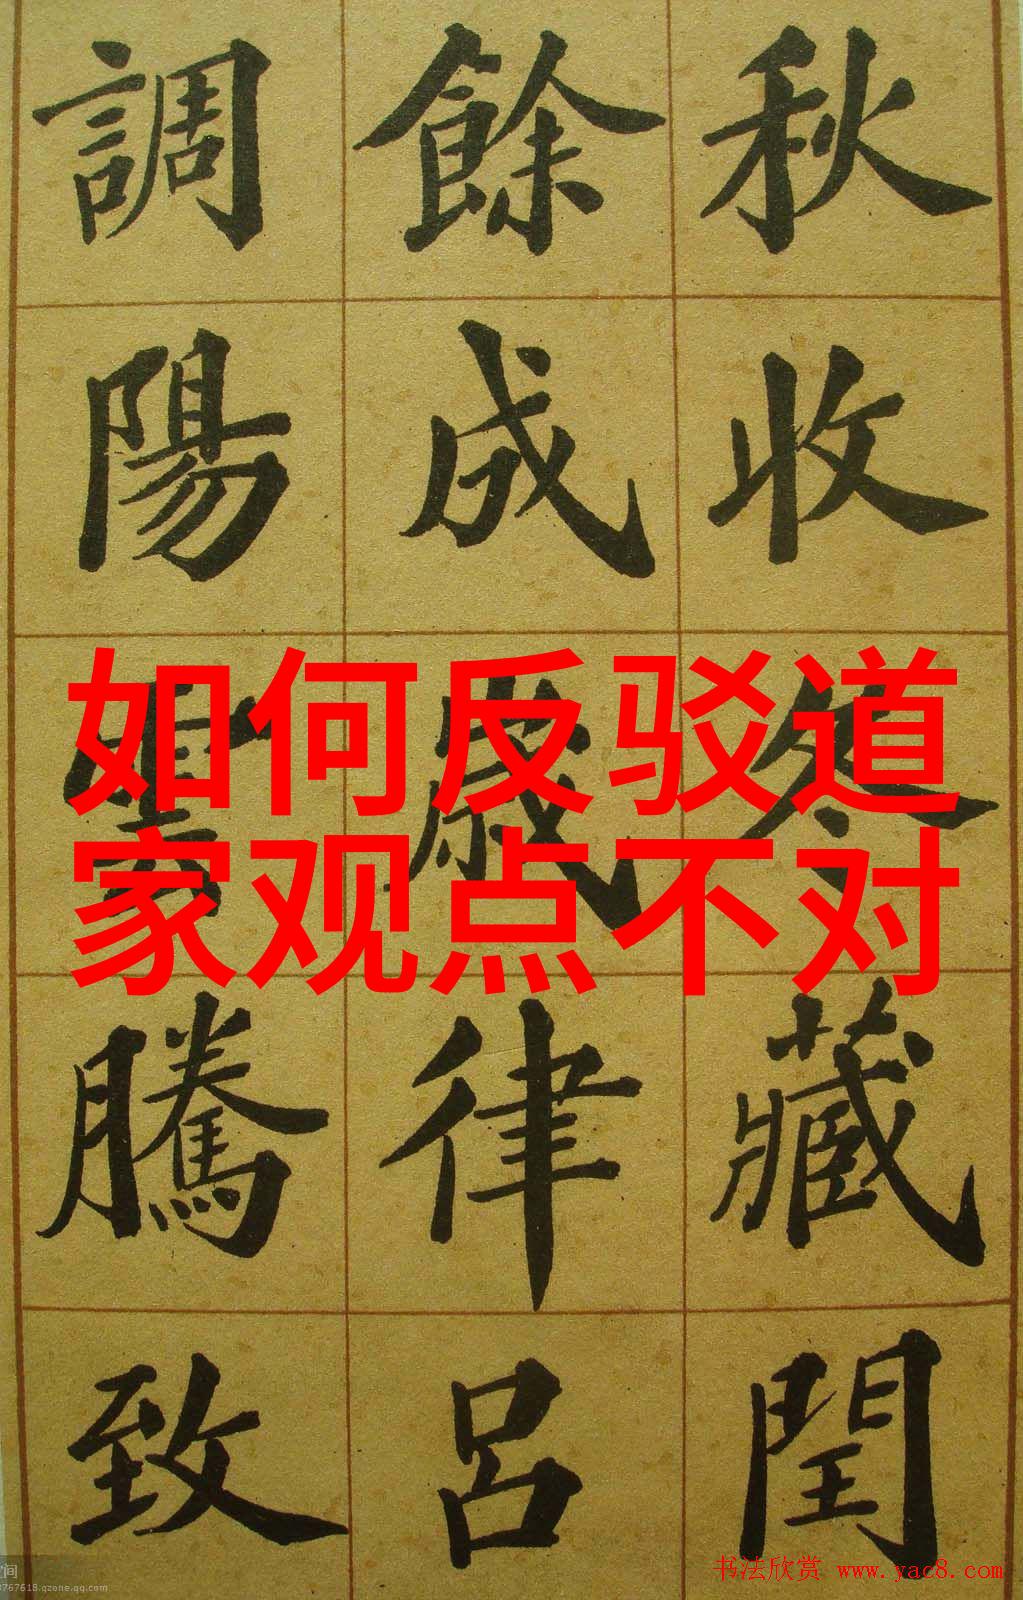 秋收冬藏閏
餘成歲律呂
調陽雲騰致
如何反驳道
家观点不对
书法欣赏 www.yac8.com
767618.qzone.qq.com